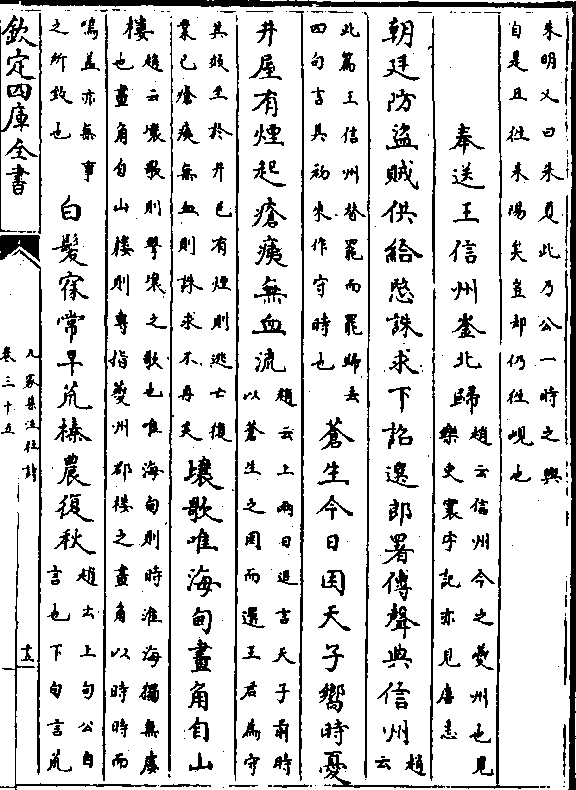 朱明又曰朱夏此乃公一時之興
自是且往朱陽矣豈却仍往峴也
奉送王信州崟北歸
趙云信州今之夔州也見
樂史寰宇記亦見唐志
朝廷防盜賊供給愍誅求下詔選郎署傳聲典信州
趙
云
此篇王信州替罷而罷歸去
四句言其初來作守時也
蒼生今日困天子嚮時憂
井屋有煙起瘡痍無血流
趙云上兩句追言天子前時
以蒼生之困而選王君為守
其頌至於井邑有煙則逃亡復
業已瘡痍無血則誅求不再矣
壤歌唯海甸畫角自山
樓
趙云壤歌則擊壤之歌也唯海甸則時淮海獨無虞
也畫角自山樓則專指夔州郡樓之畫角以時時而
鳴蓋亦無事
之所致也
白髮寐常早荒榛農復秋
趙云上句公自
言也下句言荒
欽定四庫全書
九家集注杜詩
卷三十五
十五